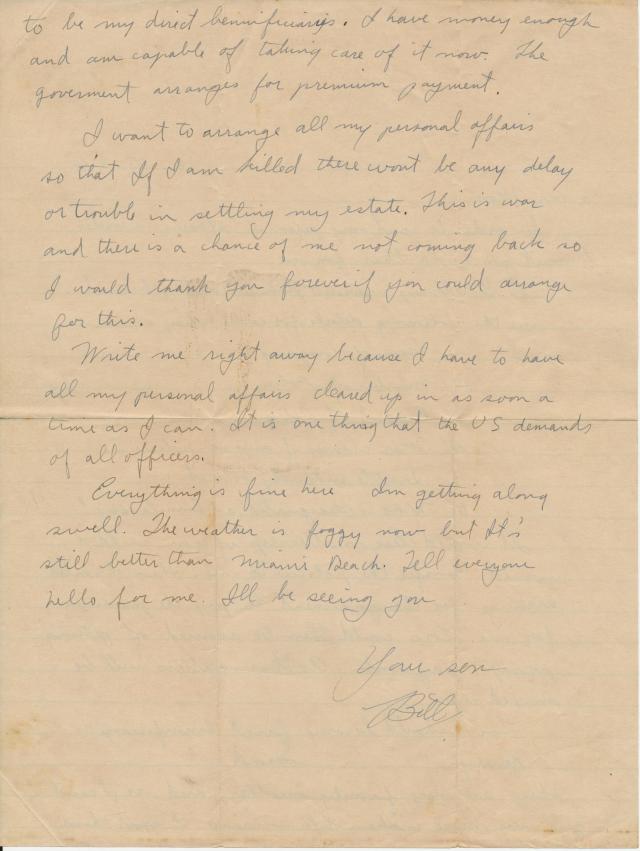 to be my direct bennificiarys. I have money enough
and am capable of taking care of it now. The
goverment arranges for premium payment.
I want to arrange all my personal affairs
so that If I am killed there wont be any delay
or trouble in settling my estate. This is war
and there is a chance of me not coming back so
I would thank you forever if you could arrange
for this.
Write me right away because I have to have
all my personal affairs cleared up in as soon a
time as I can. It is one thing that the US demands
of all officers.
Everything is fine here Im getting along
swell. The weather is foggy now but It's
still better than Miami Beach. Tell everyone
hello for me. I'll be seeing you
Your son
Bill